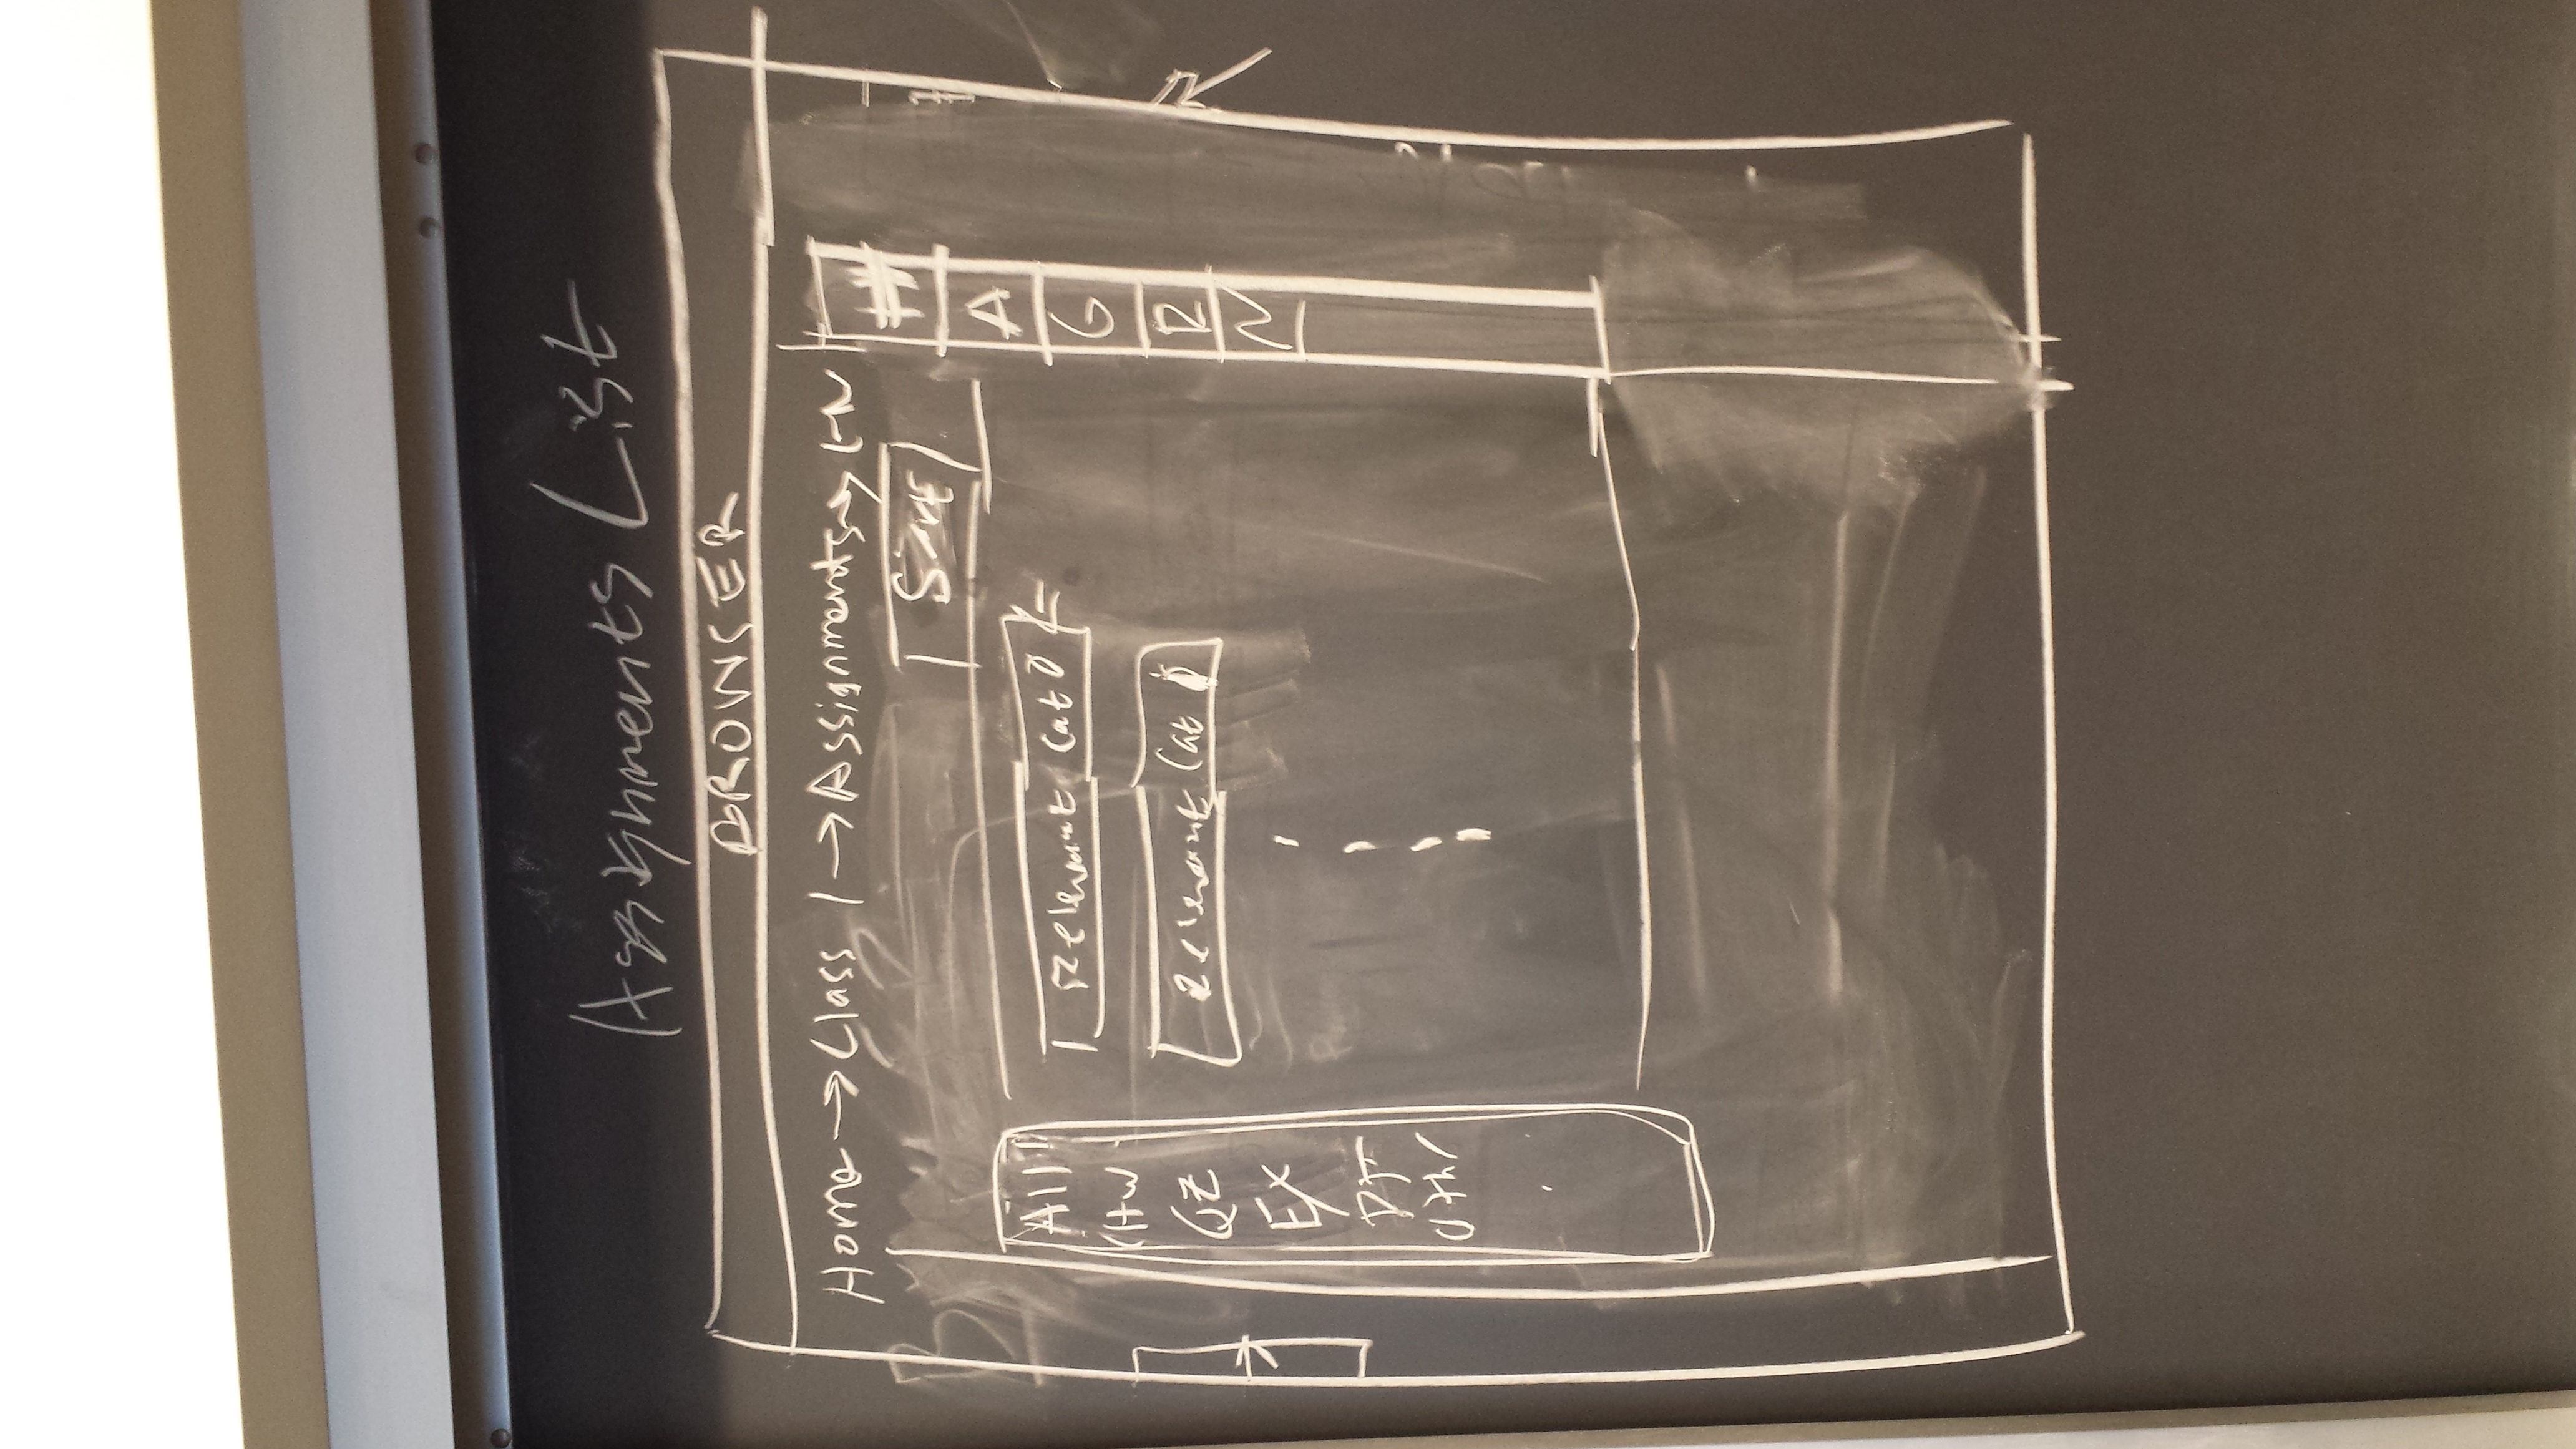 Assignments List
BROWSER
Home → Class 1 → Assignments → HW
Sort
All
HW
QZ
Ex
Othr
Relevant Cat 0
Relevant Cat 1
H
A
G
R
N